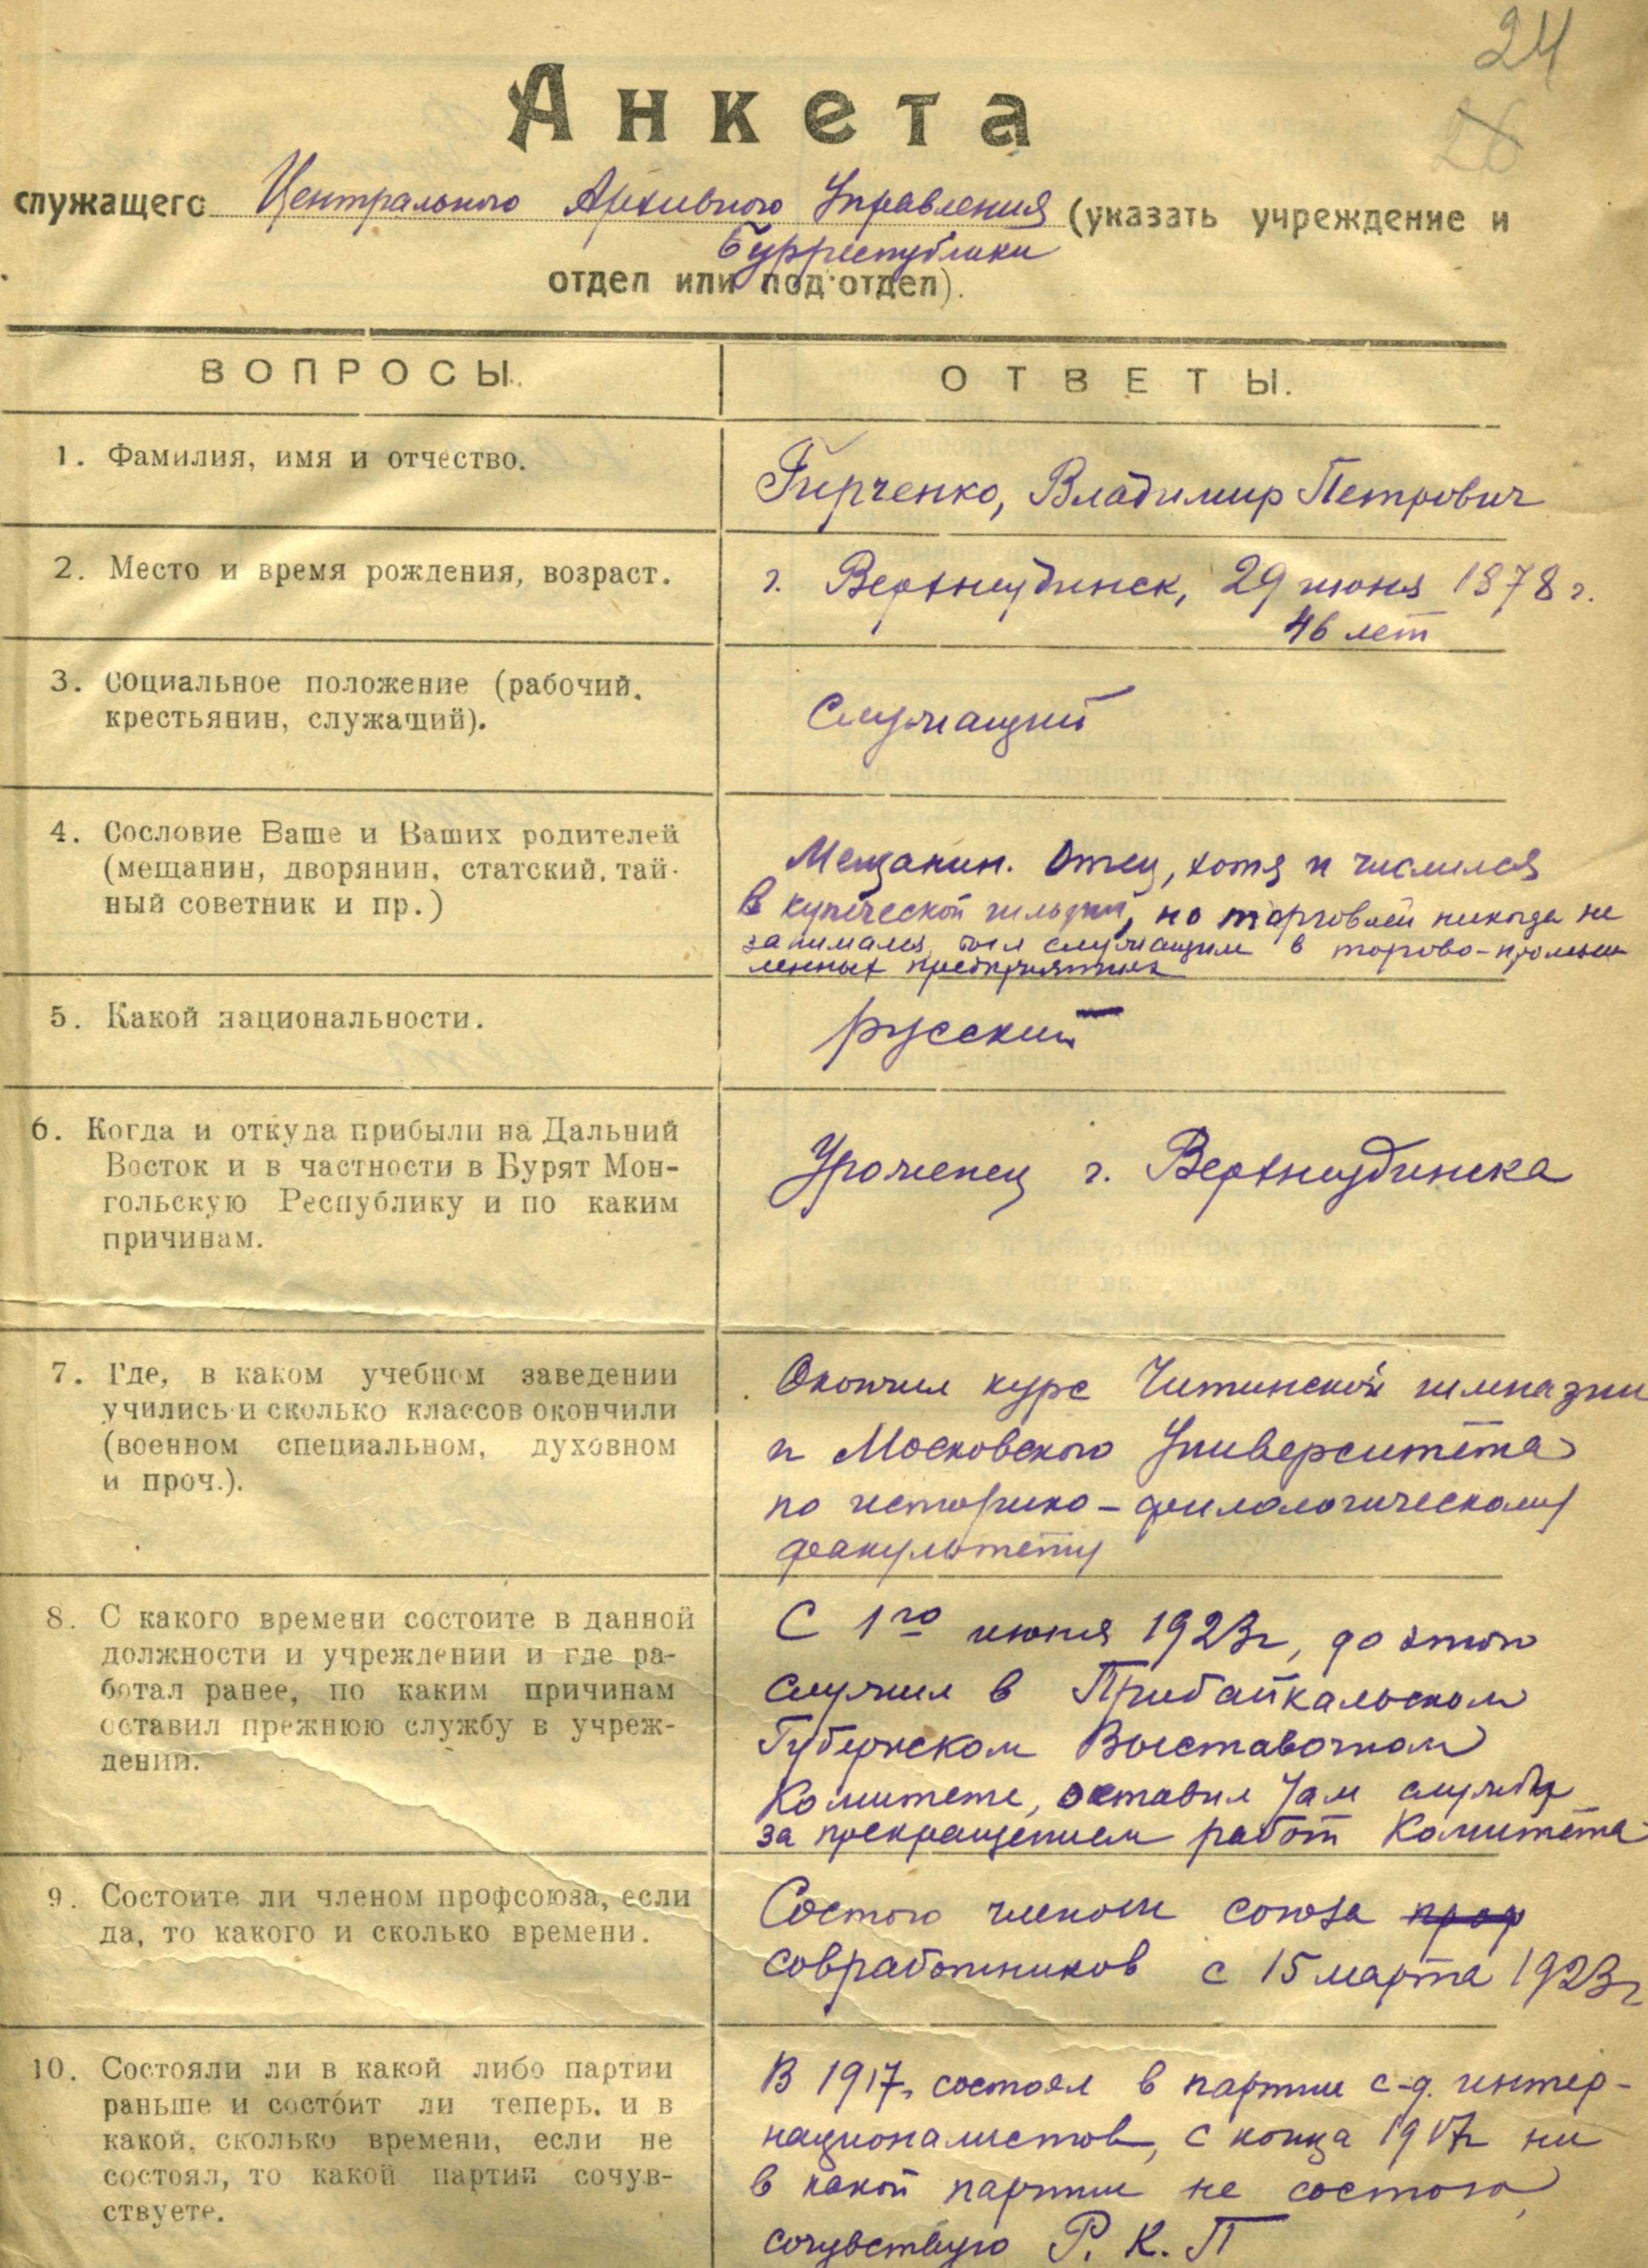 24
26
Анкета
служащего Центрального Архивного Управления (указать учреждение и
Бурреспублики
отдел или под'отдел).
ВОПРОСЫ.
ОТВЕТЫ.
1. Фамилия, имя и отчество.
Гирченко, Владимир Петрович
2. Место и время рождения, возраст.
г. Верхнеудинск, 29 июня 1878 г.
46 лет
3. Социальное положение (рабочий,
крестьянин, служащий).
Служащий
4. Сословие Ваше и Ваших родителей
(мещанин, дворянин, статский, тай-
ный советник и пр.)
Мещанин. Отец, хотя и числился
в купеческой гильдии, но торговлей никогда не
занимался, был служащим в торгово-промыш
ленных предприятиях
5. Какой национальности.
русский
6. Когда и откуда прибыли на Дальний
Восток и в частности в Бурят Мон-
гольскую Республику и по каким
причинам.
Уроженец г. Верхнеудинска
7. Где, в каком учебном заведении
учились и сколько классов окончили
(военном специальном, духовном
и проч.).
Окончил курс Читинской гимназии
и Московского Университета
по историко-филологическому
факультету
8. С какого времени состоите в данной
должности и учреждении и где ра-
ботал ранее, по каким причинам
оставил прежнюю службу в учреж-
дении.
С 1го июня 1923г, до этого
служил в Прибайкальском
Губернском Выставочном
Комитете, оставил там службу
за прекращением работ Комитета
9. Состоите ли членом профсоюза, если
да, то какого и сколько времени.
Состою членом союза проф
совработников с 15 марта 1923г
10. Состояли ли в какой либо партии
раньше и состоит ли теперь, и в
какой, сколько времени, если не
состоял, то какой партии сочув-
ствуете.
В 1917г состоял в партии с-д. интер-
националистов, с конца 1917г ни
в какой партии не состою,
сочувствую Р. К. П